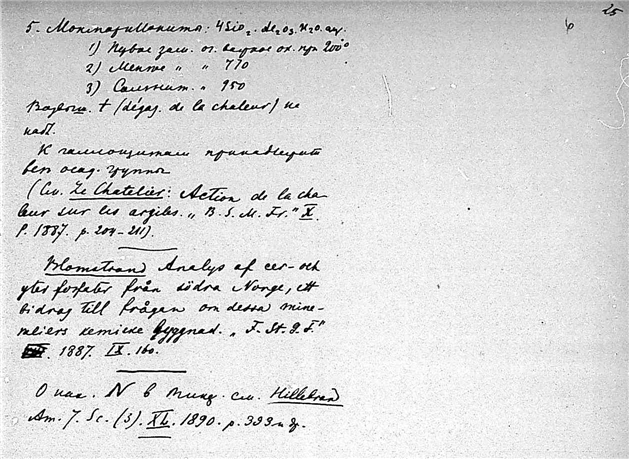 25
6
5. Монтмориллонит: 4SiO2. Al2O3. H2O. aq.
1) Первое зам. от. ок. при 200°
2) Менее „ „ 770
3) „ 950
+ (dégag. de la chaleur) не
набл.
К галлоизитам принадлежит
вся осад. группа
(См. Le Chatelier: Action de la cha-
leur sur les argiles. „B. S. M. Fr." X.
P. 1887. p. 204-211).
Blomstrand Analys af cer- och
yterfosfater från södra Norge, ett
bidrag till frågan om dessa mine-
raliers kemiske byggnad. „F. St. g. F."
1887. IX. 160.
О нах. N в см. Hillebrand
Am. J. Sc. (3). XL. 1890. p.